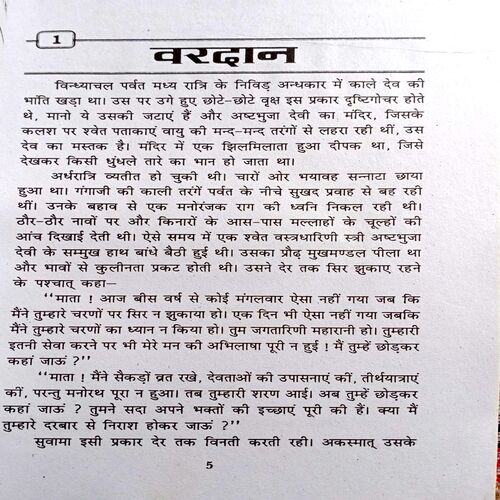 1
वरदान
विन्ध्याचल पर्वत मध्य रात्रि के निविड़ अन्धकार में काले देव की
भांति खड़ा था। उस पर उगे हुए छोटे-छोटे वृक्ष इस प्रकार दृष्टिगोचर होते
थे, मानो ये उसकी जटाएं हैं और अष्टभुजा देवी का मंदिर, जिसके
कलश पर श्वेत पताकाएं वायु की मन्द-मन्द तरंगों से लहरा रही थीं, उस
देव का मस्तक है। मंदिर में एक झिलमिलाता हुआ दीपक था, जिसे
देखकर किसी धुंधले तारे का भान हो जाता था।
अर्धरात्रि व्यतीत हो चुकी थी। चारों ओर भयावह सन्नाटा छाया
हुआ था। गंगाजी की काली तरंगें पर्वत के नीचे सुखद प्रवाह से बह रही
थीं। उनके बहाव से एक मनोरंजक राग की ध्वनि निकल रही थी।
ठौर-ठौर नावों पर और किनारों के आस-पास मल्लाहों के चूल्हों की
आंच दिखाई देती थी। ऐसे समय में एक श्वेत वस्त्रधारिणी स्त्री अष्टभुजा
देवी के सम्मुख हाथ बांधे बैठी हुई थी। उसका प्रौढ़ मुखमण्डल पीला था
और भावों से कुलीनता प्रकट होती थी। उसने देर तक सिर झुकाए रहने
के पश्चात् कहा—
"माता ! आज बीस वर्ष से कोई मंगलवार ऐसा नहीं गया जब कि
मैंने तुम्हारे चरणों पर सिर न झुकाया हो। एक दिन भी ऐसा नहीं गया जबकि
मैंने तुम्हारे चरणों का ध्यान न किया हो। तुम जगतारिणी महारानी हो। तुम्हारी
इतनी सेवा करने पर भी मेरे मन की अभिलाषा पूरी न हुई ! मैं तुम्हें छोड़कर
कहां जाऊं ?"
"माता ! मैंने सैकड़ों व्रत रखे, देवताओं की उपासनाएं कीं, तीर्थयात्राएं
कीं, परन्तु मनोरथ पूरा न हुआ। तब तुम्हारी शरण आई। अब तुम्हें छोड़कर
कहां जाऊं ? तुमने सदा अपने भक्तों की इच्छाएं पूरी की हैं। क्या मैं
तुम्हारे दरबार से निराश होकर जाऊं ?"
सुवामा इसी प्रकार देर तक विनती करती रही। अकस्मात् उसके
5